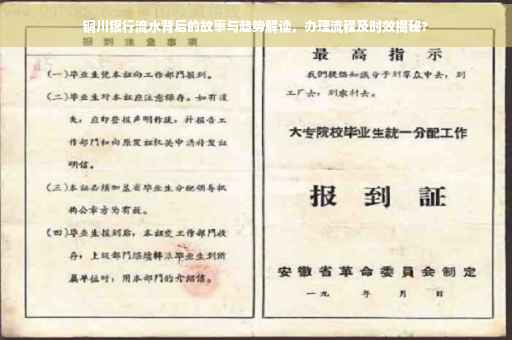 铜川银行流水背后的故事与趋势解读，办理流程及时效揭秘?
报到注意事项
(一)毕业生凭本证向工作部门报到。
(二)毕业生对本证应注意保存。如有遗
失，应即登报声明作废，并报告工
作部门和向原发证机关申请补发证
明信。
(三)本证必须加盖省毕业生分配领导机
构公章方为有效。
(四)毕业生报到后，本证交工作部门收
存；上级部门继续转派毕业生到所
属单位时，用本部门的介绍信。
最高指示
我们提倡知识分子到群众中去，到
工厂去，到农村去。
大专院校毕业生统一分配工作
报到证
安徽省革命委员会制定
一九 年 月 日